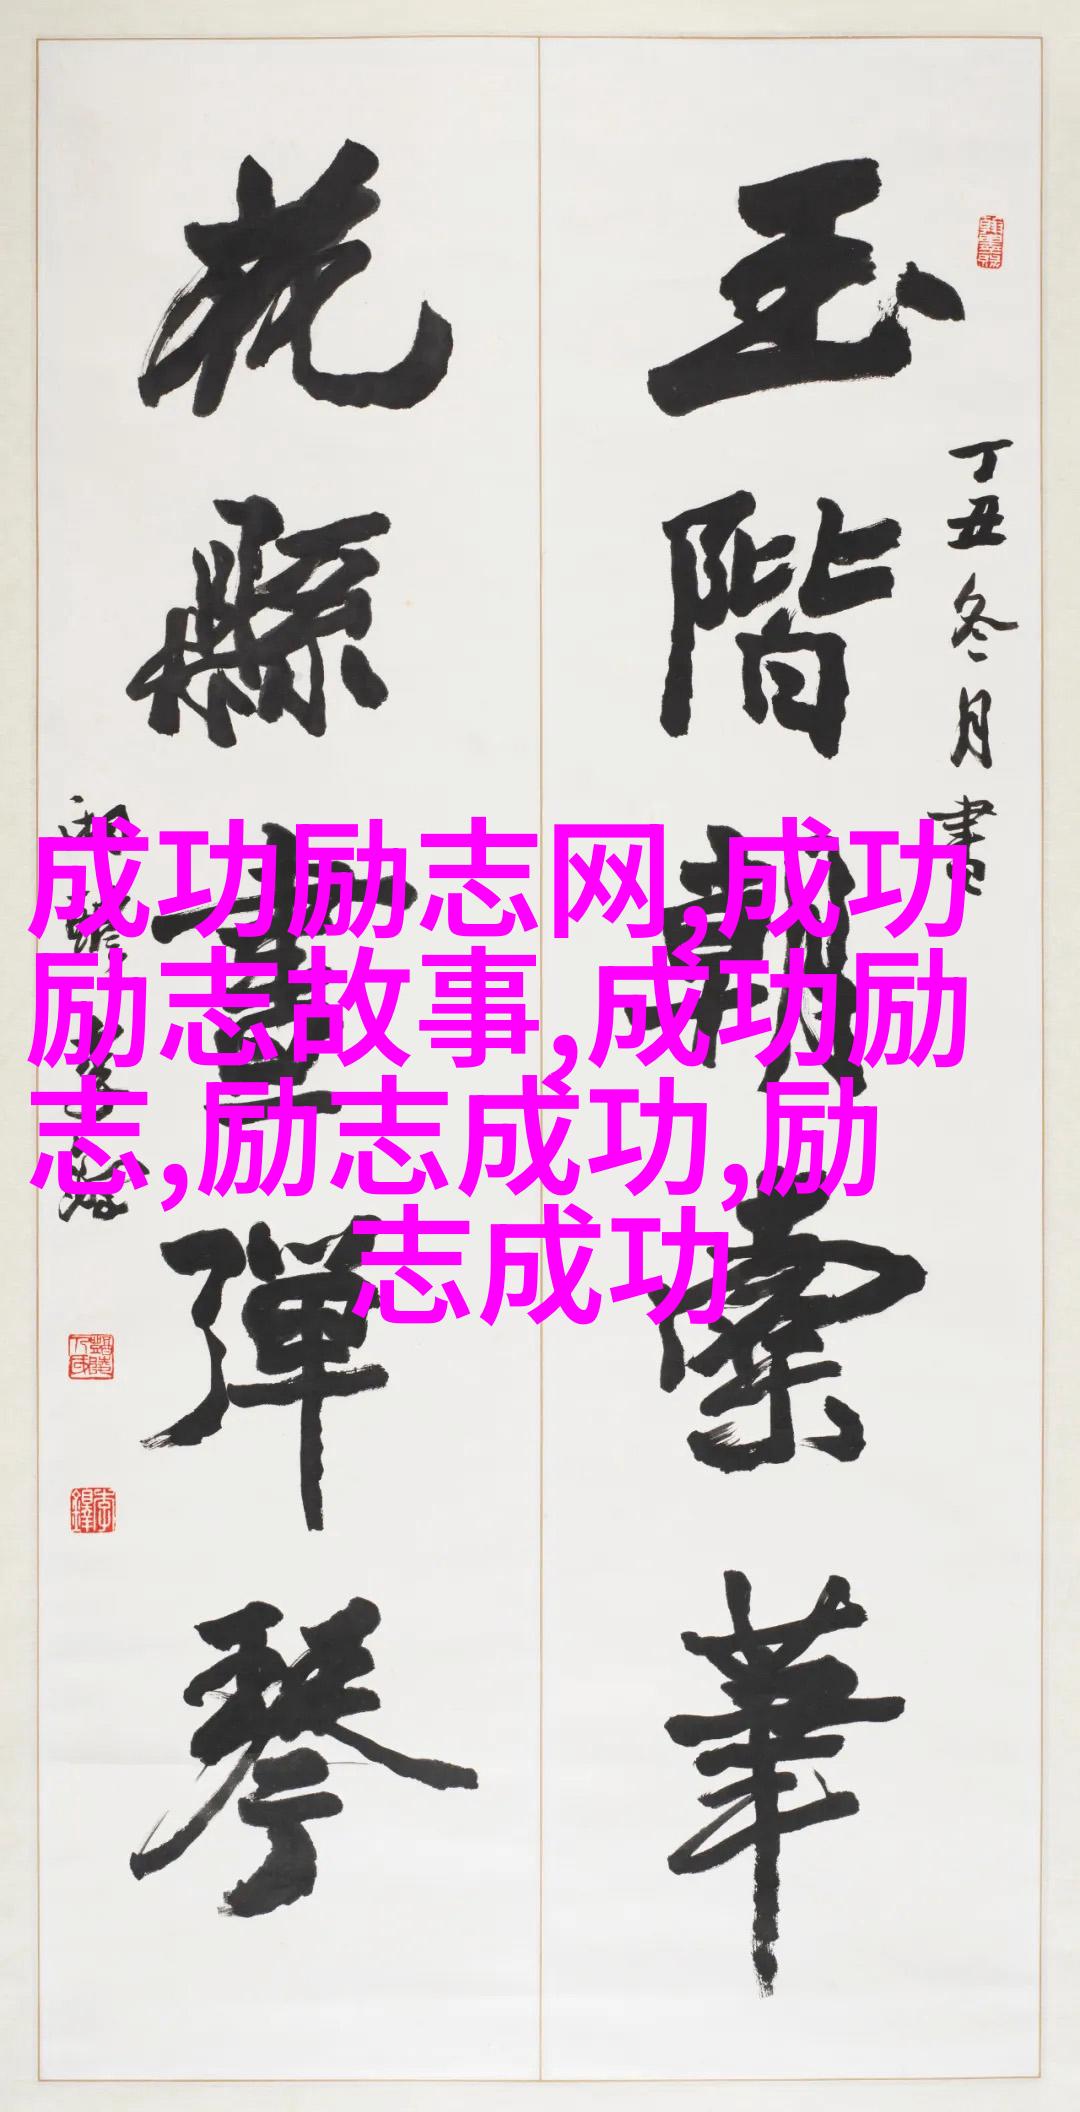 玉階朝索華
丁丑冬月書
花縣晝彈琴
成功励志网,成功
励志故事,成功励
志,励志成功,励
志成功